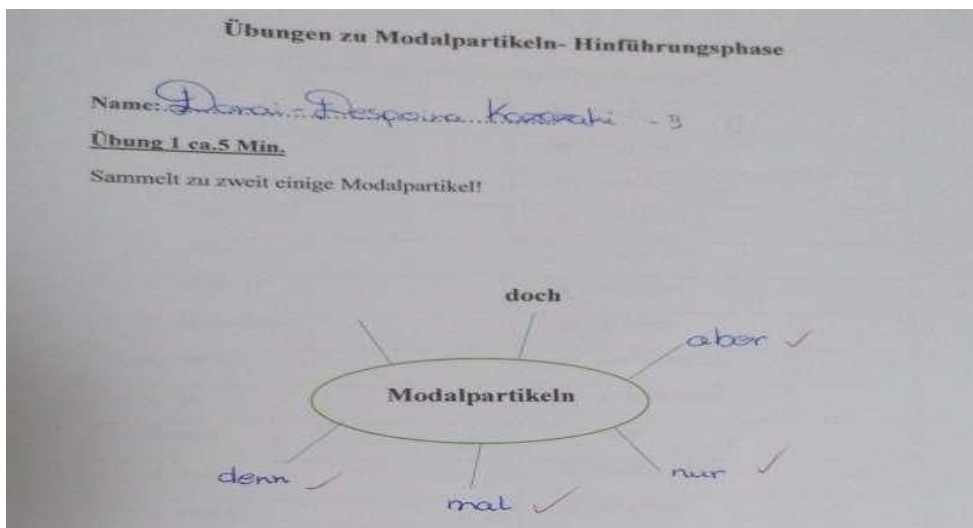 Übungen zu Modalpartikeln- Hinführungsphase
Name: Danai-Despoina - 3
Übung 1 ca.5 Min.
Sammelt zu zweit einige Modalpartikel!
doch
aber
Modalpartikeln
denn
mal
nur